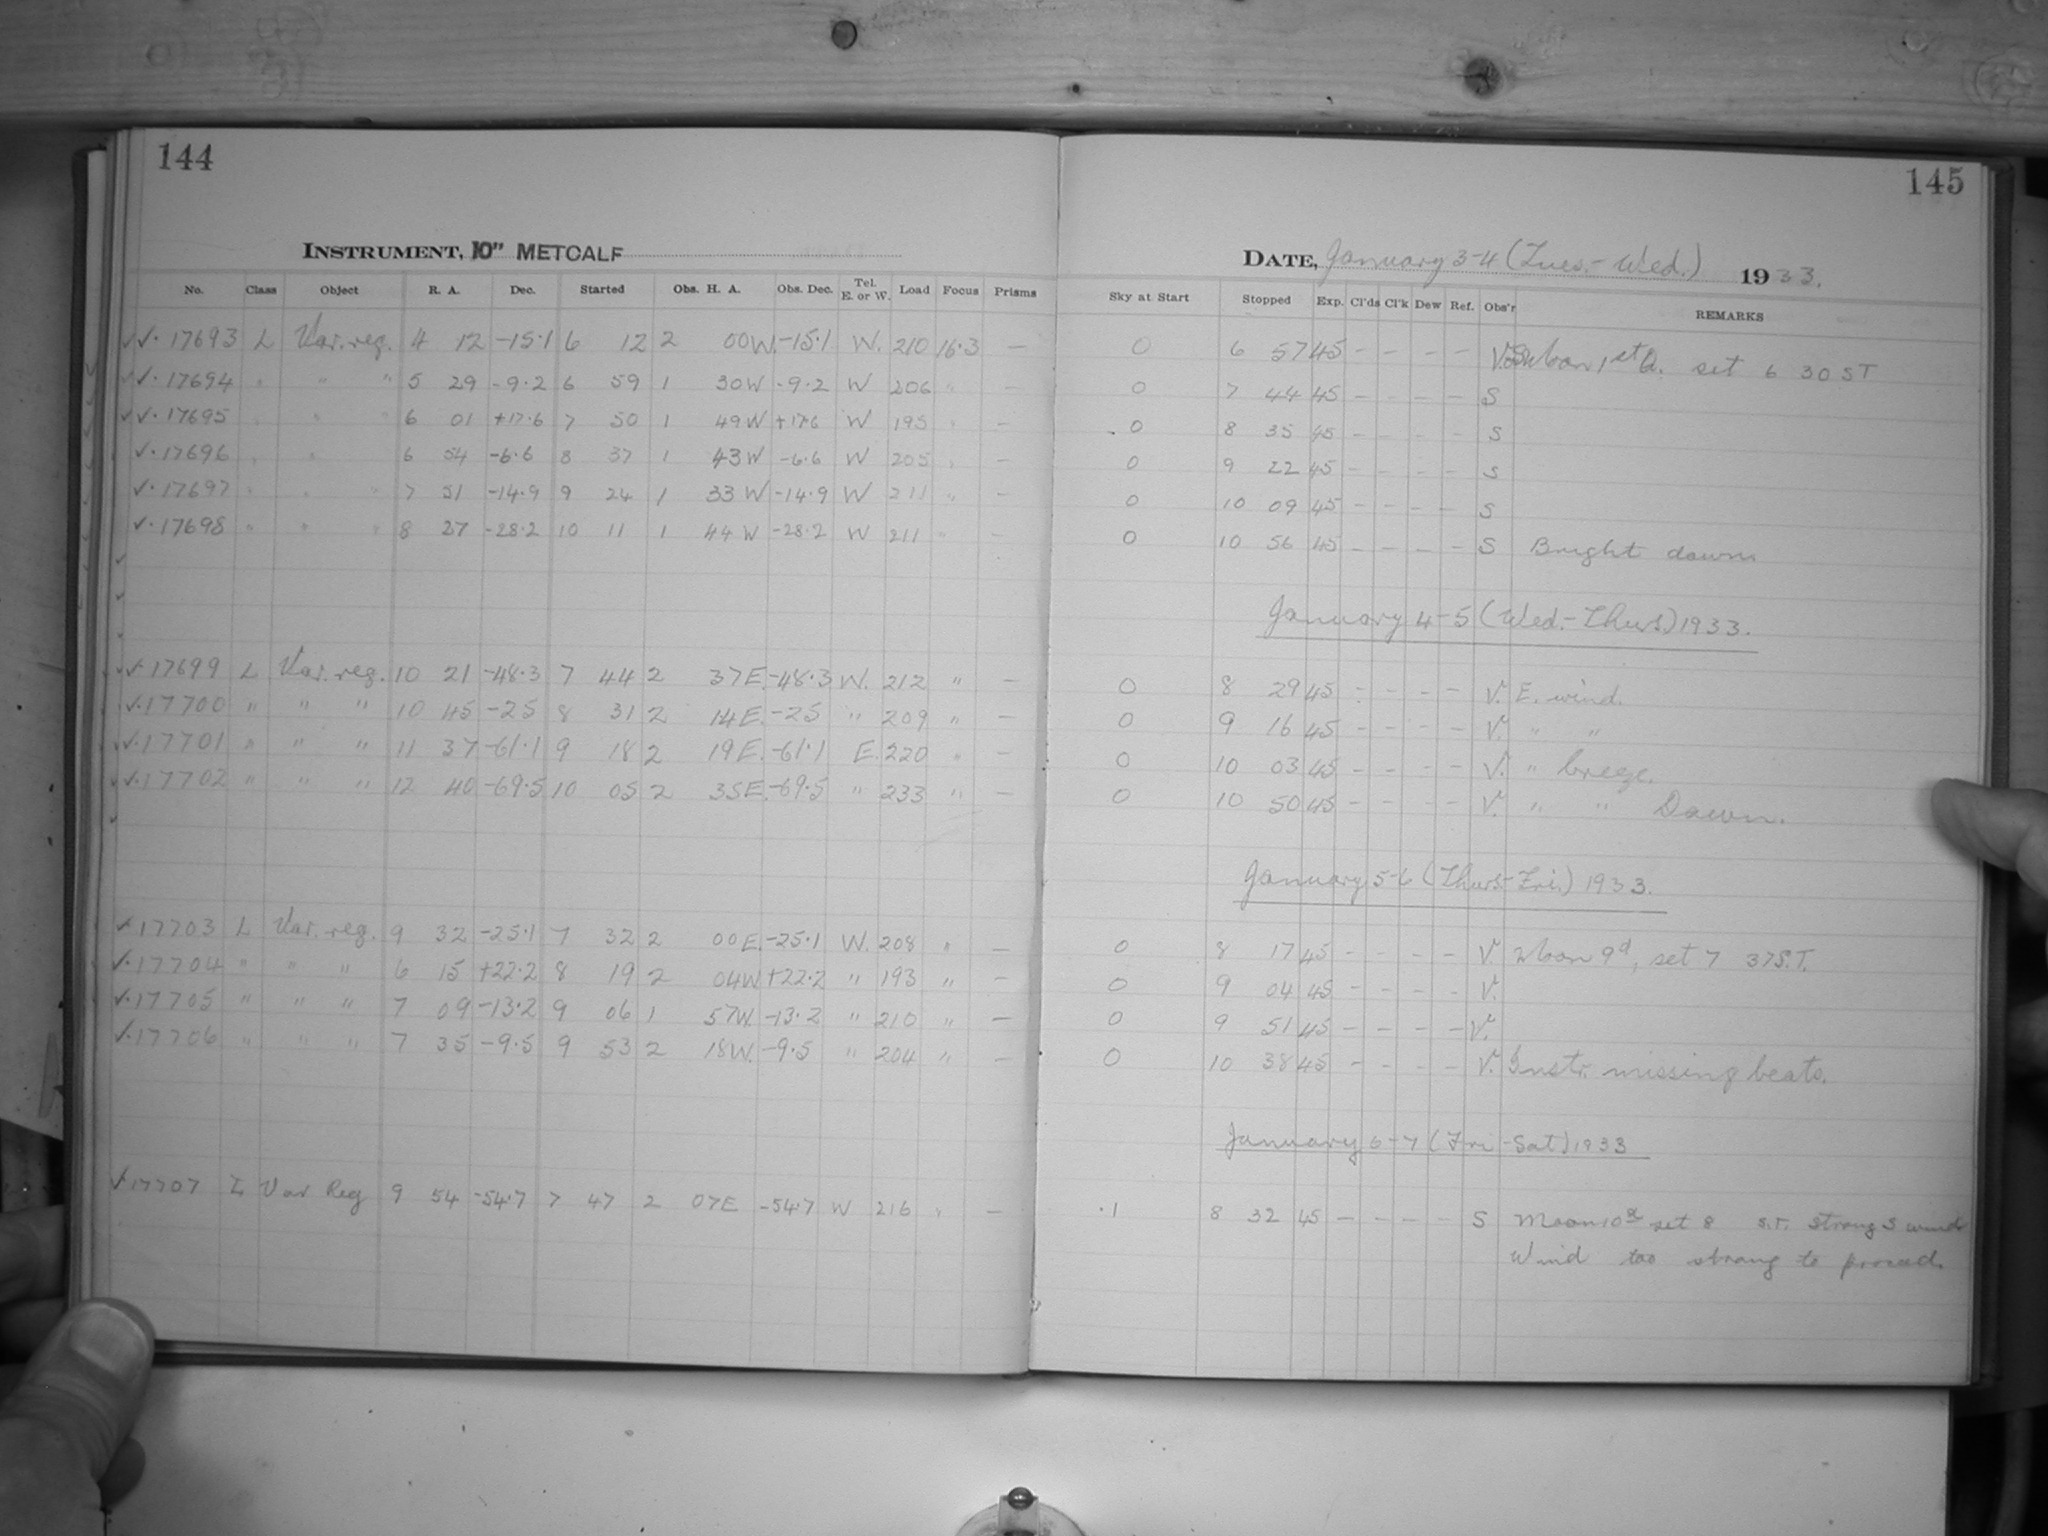 144
INSTRUMENT, 10" METCALF
No. Class Object R. A. Dec. Started Obs. H. A. Obs. Dec. Tel. E. or W. Load Focus Prisms
✓✓· 17693 L Var. reg. 4 12 -15·1 6 12 2 00W. -15·1 W. 210 16·3 —
✓· 17694 " " " 5 29 -9·2 6 59 1 30W -9·2 W 206 " —
✓· 17695 " " 6 01 +17·6 7 50 1 49W +17·6 W 195 " —
✓· 17696 " " 6 54 -6·6 8 37 1 43W -6·6 W 205 " —
✓· 17697 " " " 7 51 -14·9 9 24 1 33W -14·9 W 211 " —
✓· 17698 " " " 8 27 -28·2 10 11 1 44W -28·2 W 211 " —
✓· 17699 L Var. reg. 10 21 -48·3 7 44 2 37E. -48·3 W. 212 " —
✓· 17700 " " " 10 45 -25 8 31 2 14E. -25 " 209 " —
✓· 17701 " " " 11 37 -61·1 9 18 2 19E. -61·1 E. 220 " —
✓· 17702 " " " 12 40 -69·5 10 05 2 35E. -69·5 " 233 " —
✓· 17703 L Var. reg. 9 32 -25·1 7 32 2 00E. -25·1 W. 208 " —
✓· 17704 " " " 6 15 +22·2 8 19 2 04W +22·2 " 193 " —
✓· 17705 " " " 7 09 -13·2 9 06 1 57W. -13·2 " 210 " —
✓· 17706 " " " 7 35 -9·5 9 53 2 18W. -9·5 " 204 " —
✓· 17707 L Var Reg 9 54 -54·7 7 47 2 07E -54·7 W 216 " —
145
DATE, January 3-4 (Tues.- Wed.) 1933.
Sky at Start Stopped Exp. Cl'ds Cl'k Dew Ref. Obs'r REMARKS
0 6 57 45 - - - - Moon 1st Q. set 6 30 ST
0 7 44 45 - - - - S
0 8 35 45 - - - - S
0 9 22 45 - - - - S
0 10 09 45 - - - - S
0 10 56 45 - - - - S Bright dawn
January 4-5 (Wed.- Thurs) 1933.
0 8 29 45 - - - - V. E. wind.
0 9 16 45 - - - - V. " "
0 10 03 45 - - - - V. " breeze.
0 10 50 45 - - - - V. " " Dawn.
January 5-6 (Thurs.- Fri.) 1933.
0 8 17 45 - - - - V. Moon 9d, set 7 37 S.T.
0 9 04 45 - - - - V.
0 9 51 45 - - - - V.
0 10 38 45 - - - - V. Instr. missing beats.
January 6-7 (Fri - Sat) 1933
·1 8 32 45 — — — — S Moon 10d set 8 S.T. Strong S wind
Wind too strong to proceed.